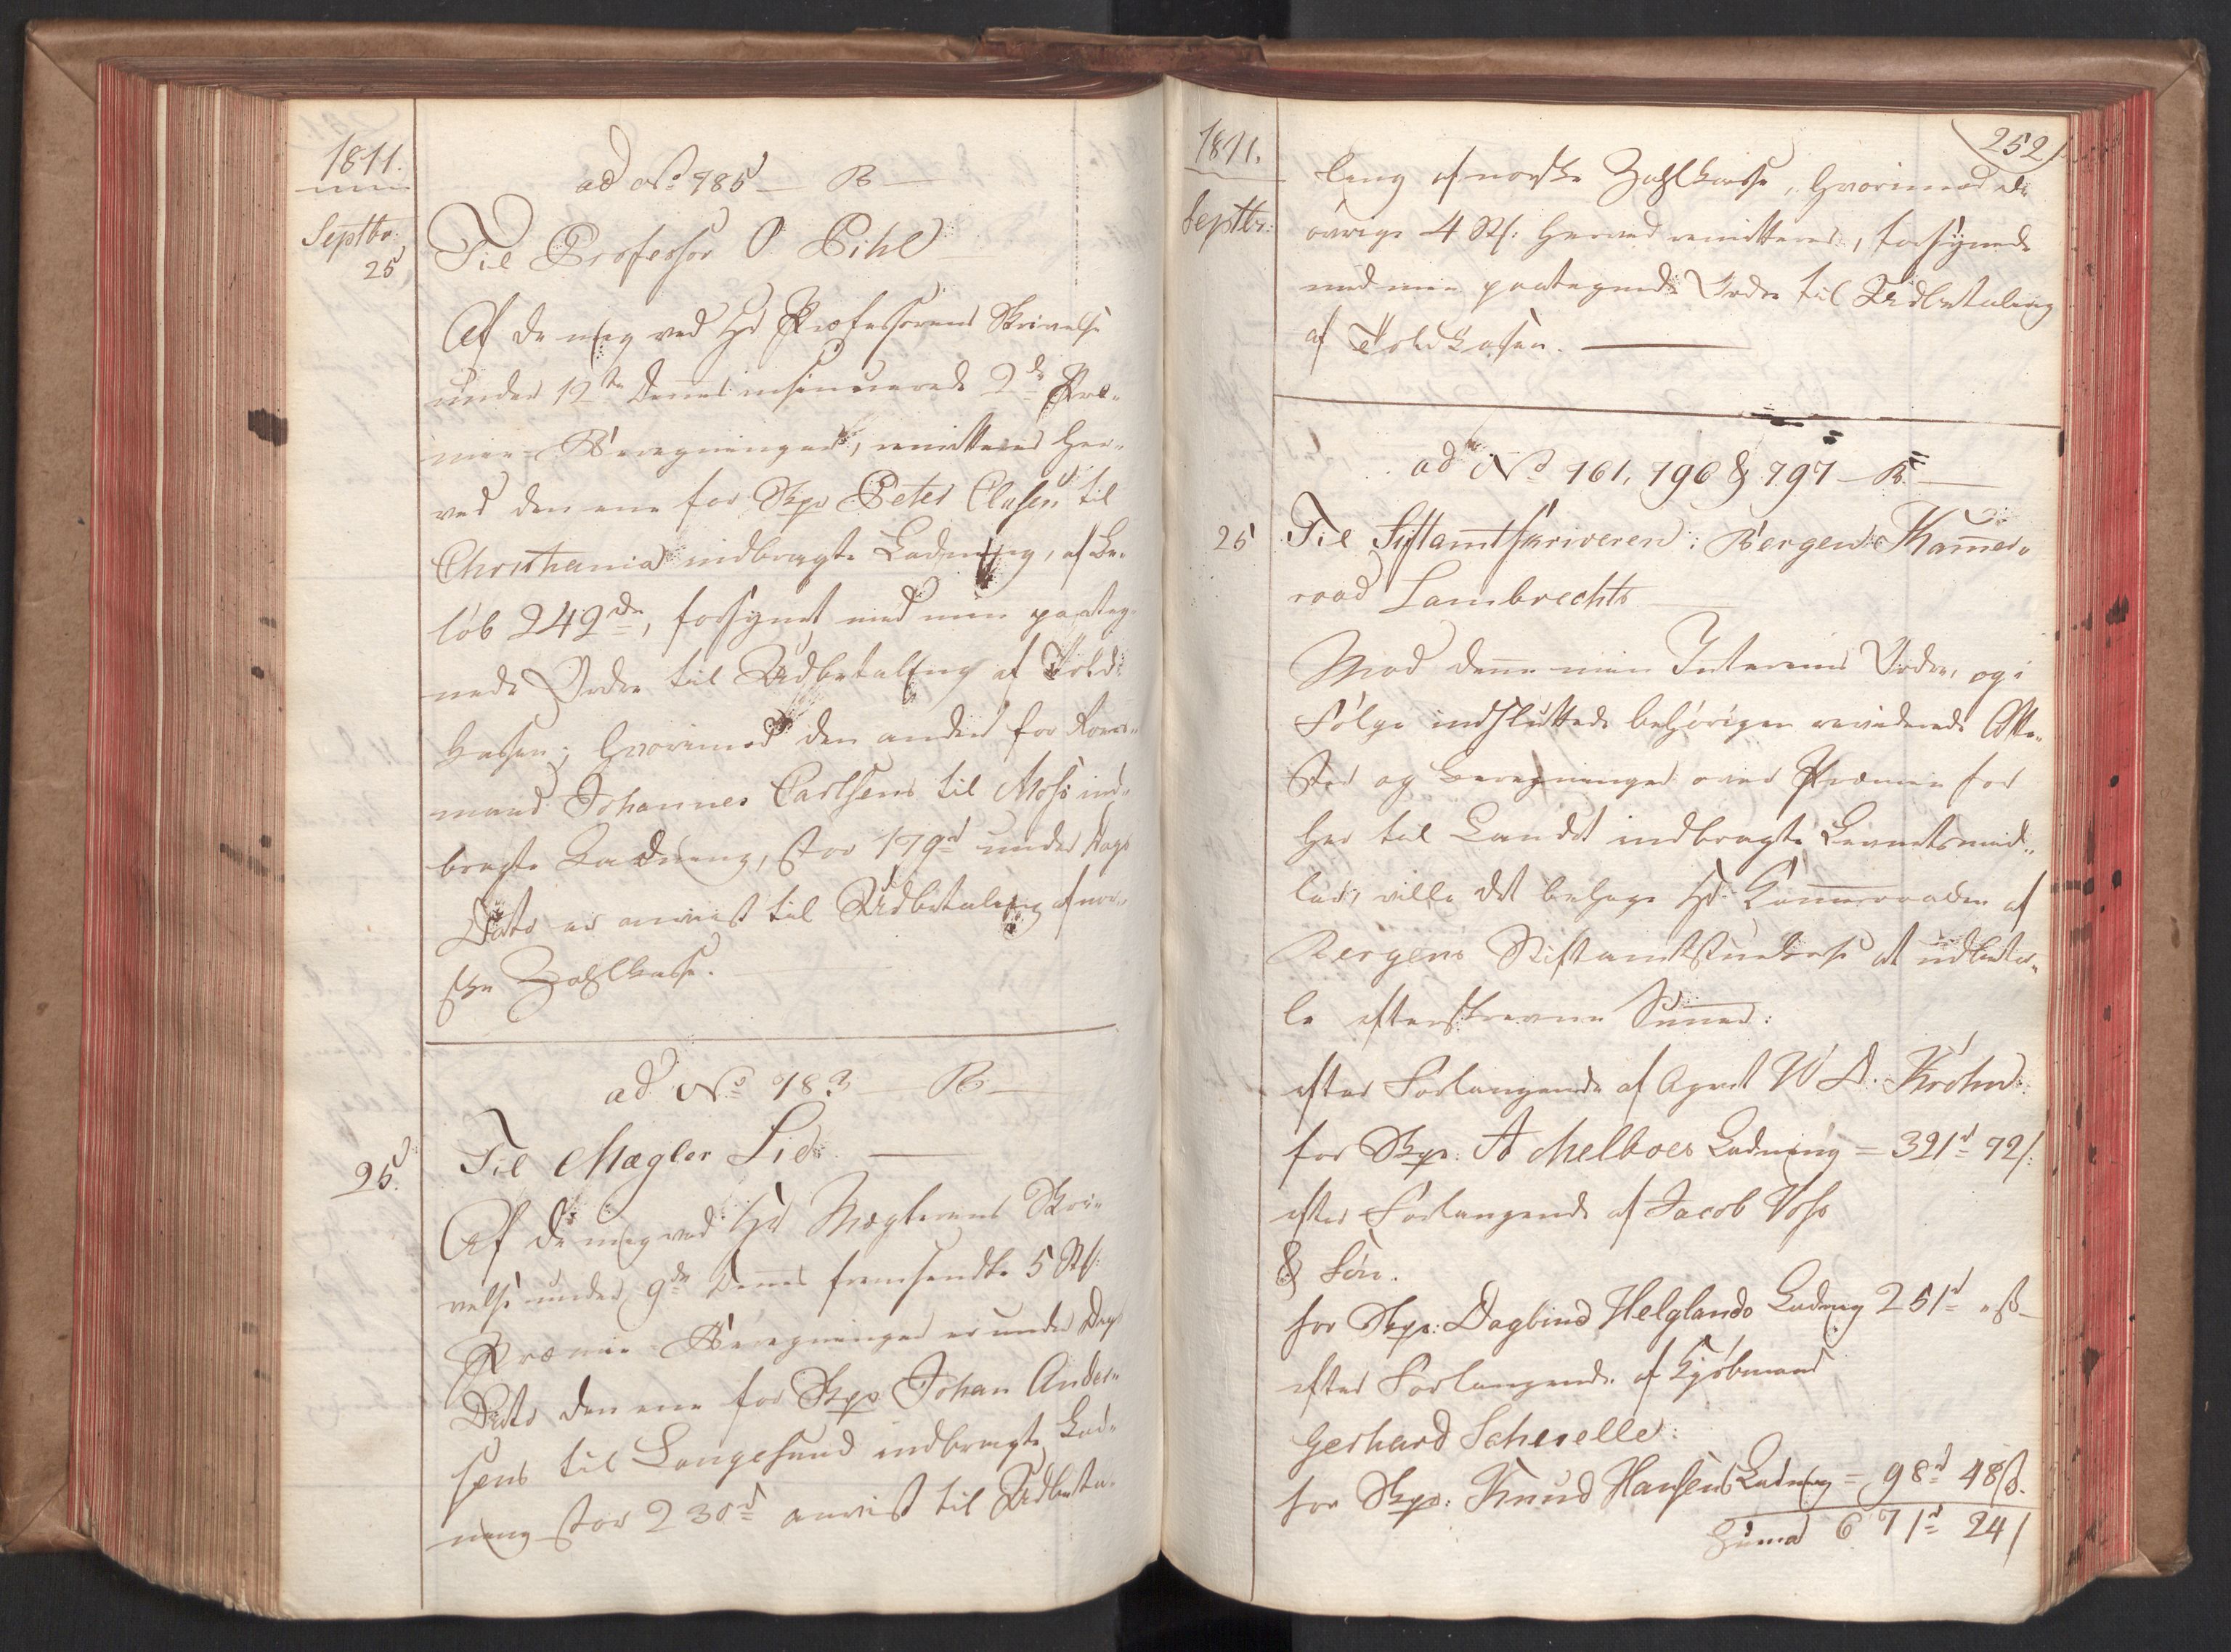 1811.
Septbr:
25
ad No. 785 – B –
Til Professor O. Pihl
Af de mig ved Hr Professorens Skrivelse
under 12te Dennes insinuerede 2de Præ-
mie-Beregninger, remitteres her-
ved den ene for Skpr Peter Clasens til
Christiania indbragte Ladning, af Be-
løb 242rd, forsynet med min paateg-
nede Ordre til Udbetaling af Told-
kassen; hvorimod den anden for
mand Johannes Carlsens til Moss ind-
bragte Ladning, stor 179rd under Dags
Dato er anvist til Udbetaling af nor-
ske Zahlkasse.
ad No. 783 – B –
25.
Til Mægler Lid
Af de mig ved Hr Mæglerens Skri-
velse under 9de Dennes fremsendte 5 St:
Præmie-Beregninger er under Dags
Dato den ene for Skpr Johan Ander-
sens til Langesund indbragte Lad-
ning stor 230rd anvist til Udbeta-
252
1811.
Septbr:
ling af norske Zahlkasse, hvorimod de
øvrige 4 St: herved remitteres, forsynede
med min paategnede Ordre til Udbetaling
af Toldkassen.
ad No. 761, 796 & 797 – B. –
25
Til Stiftamtskriveren i Bergen Kammer-
raad Lambrechts
Mod denne min Interims Ordre, og i
Følge indsluttede behørigen reviderede Atte-
ster og Beregninger over Præmien for
her til Landet indbragte Levnetsmid-
ler, ville det behage Hr Kammerraaden af
Bergens Stiftamtstuekasse at udbeta-
le efterskrevne Summer:
efter Forlangende af Agent W D. Krohn:
for Skpr: A Melboes Ladning = 321rd 72s:
efter Forlangende af Jacob Voss
& Søn.
for Skpr: Dagbind Helglands Ladning 251rd " s
efter Forlangende af Kjøbmand
Gerhard Schevelle:
for Skpr: Knud Hansens Ladning = 98rd 48s.
Summa 671rd 24s